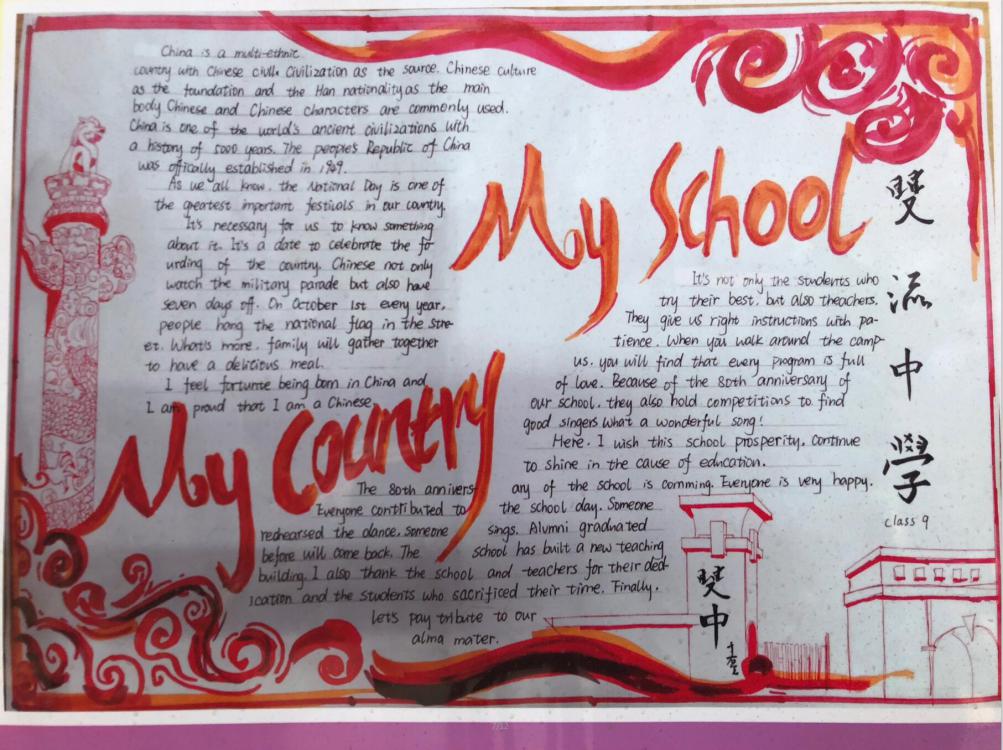 China is a multi-ethnic
country with Chinese civili Civilization as the source. Chinese culture
as the foundation and the Han nationality as the main
body Chinese and Chinese characters are commonly used.
China is one of the world's ancient civilizations with
a history of 5000 years. The people's Republic of China
was offically established in 1949.
As we all know, the National Day is one of
the greatest important festivals in our country.
It's necessary for us to know something
about it. It's a date to celebrate the fo-
urding of the country. Chinese not only
watch the military parade but also have
seven days off. On October 1st every year,
people hang the national flag in the stre-
et. What's more, family will gather together
to have a delicious meal.
I feel fortunte being born in China and
I am proud that I am a Chinese
My Country
My School
It's not only the students who
try their best, but also theachers.
They give us right instructions with pa-
tience. When you walk around the camp-
us, you will find that every program is full
of love. Because of the 80th anniversary of
our school, they also hold competitions to find
good singers what a wonderful song!
Here, I wish this school prosperity, continue
to shine in the cause of education.
The 80th annivers- any of the school is comming. Everyone is very happy.
Everyone contributed to the school day. Someone
redhearsed the dance, someone sings. Alumni graduated
before will come back. The school has built a new teaching
building. I also thank the school and teachers for their ded-
ication and the students who sacrificed their time. Finally,
let's pay tribute to our
alma mater.
雙
流
中
學
class 9
雙
中